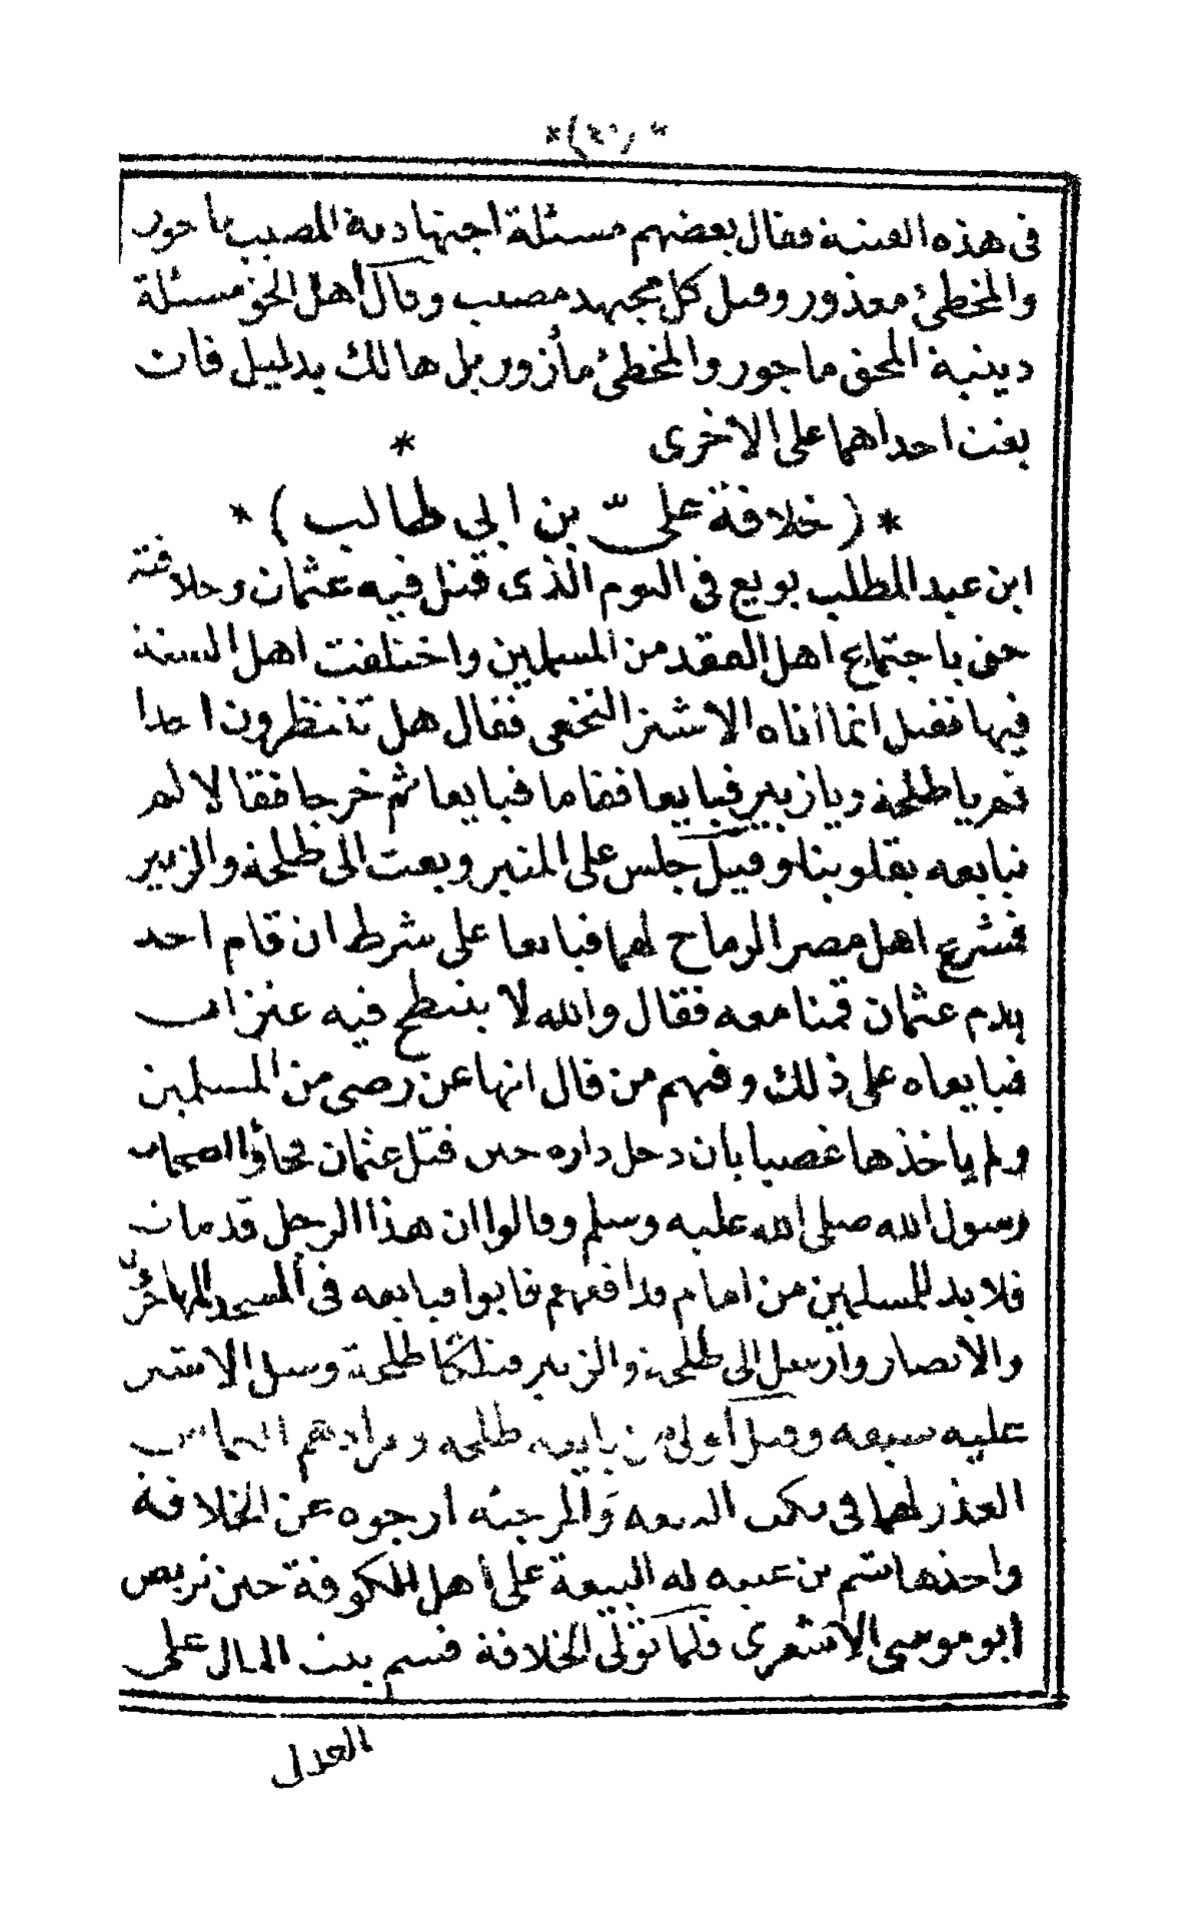 في هذه الفتنة فقال بعضهم مسئلة اجتهادية المصيب ماجور
والمخطئ معذور وقيل كل مجتهد مصيب وقال اهل الحق مسئلة
دينية المحق ماجور والمخطئ مأزور بل هالك بدليل فان
بغت احداهما على الاخرى *
* ( خلافة علىّ بن ابي طالب ) *
ابن عبد المطلب بويع في اليوم الذى قتل فيه عثمان وخلافته
حق باجتماع اهل العقد من المسلمين واختلفت اهل السنة
فيها فقيل انما اتاه الاشتر النخعى فقال هل تنتظرون احدا
قم يا طلحة ويا زبير فبايعا فقاما فبايعا ثم خرجا فقالا لم
نبايعه بقلوبنا وقيل جلس على المنبر وبعث الى طلحة والزبير
فشرع اهل مصر الرماح لهما فبايعا على شرط ان قام احد
بدم عثمان قمنا معه فقال والله لا ينتطح فيه عنزان
فبايعاه على ذلك وفيهم من قال انها عن رضى من المسلمين
ولم ياخذها غصبا بان دخل داره حين قتل عثمان فجاؤا اصحاب
رسول الله صلى الله عليه وسلم وقالوا ان هذا الرجل قد مات
فلا بد للمسلمين من امام فدافعهم فابوا فبايعه في المسجد المهاجرن
والانصار وأرسل الى طلحة والزبير فتلكأ طلحة وسل الاشتر
عليه سيفه وقيل أول من بايعه طلحة ومرادهم التماس
العذر لهما في نكث البيعة والمرجئه ارجوه عن الخلافة
واخذ هاشم بن عتبه له البيعة على أهل الكوفة حين تربص
أبو موسى الاشعرى فلما تولى الخلافة قسم بيت المال على
العدل